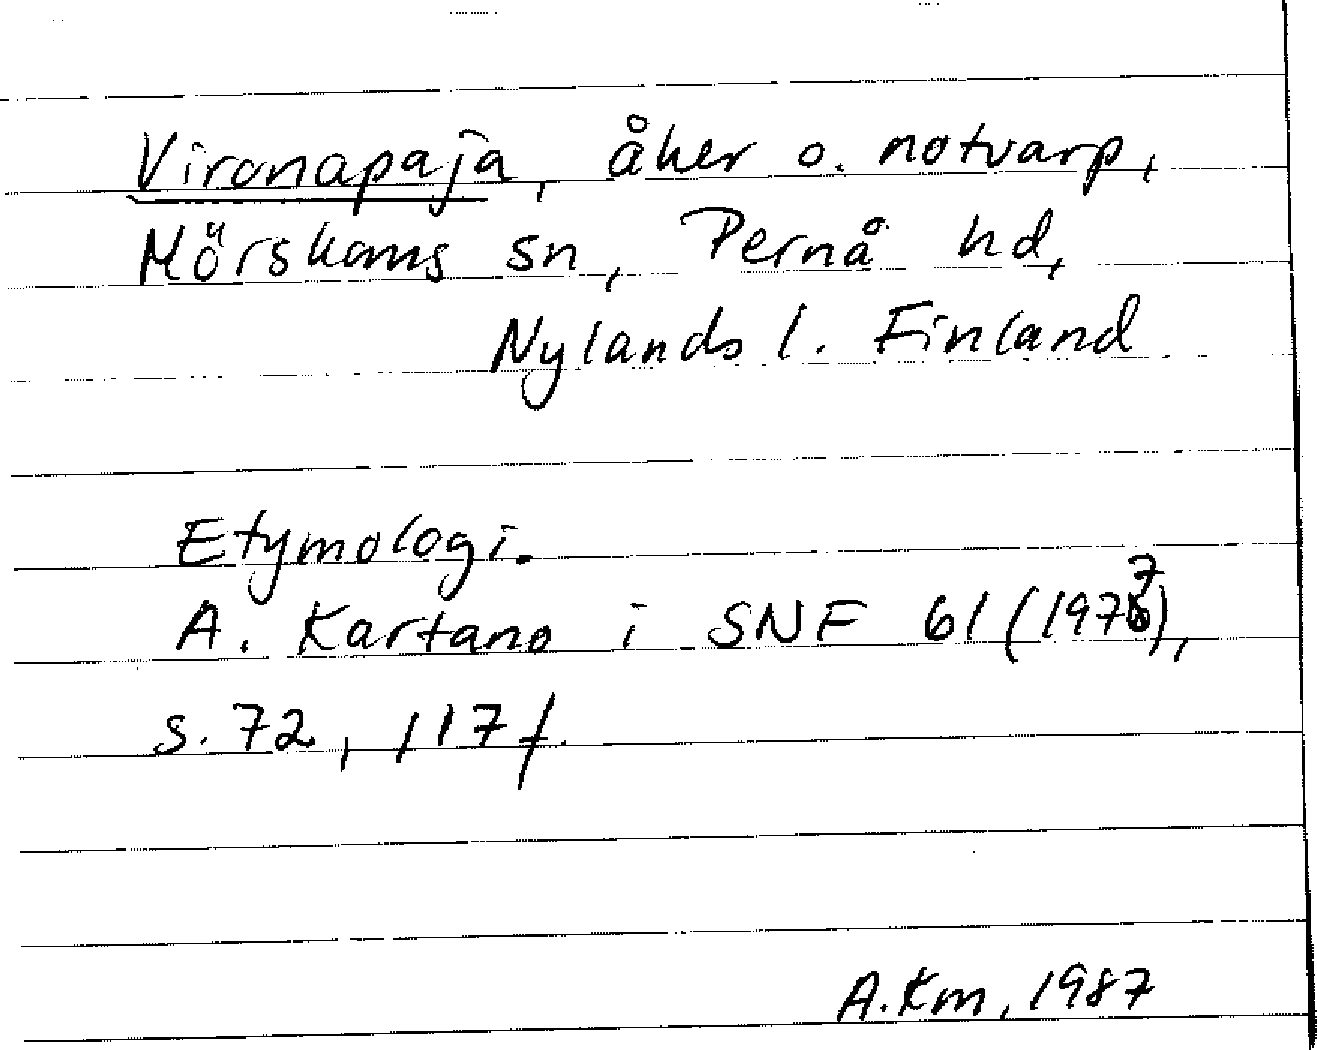 Vironapaja, åker o. notvarp,
Mörskoms sn, Pernå hd,
Nylands l. Finland
Etymologi.
A. Kartano i SNF 61 (1977),
s. 72, 117 f.
A.Km, 1987